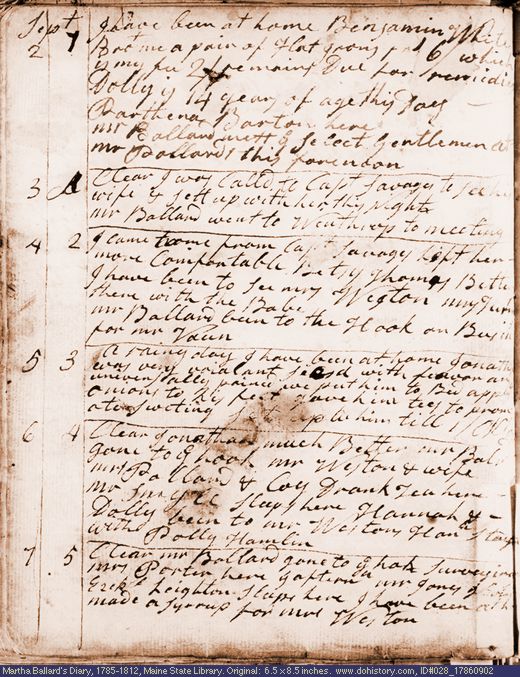 Sept
2 7 I have been at home Benjamin White
Bot me a pair of flat Irons pr 16 which
is my fee 2/ remains Due for remidies
Dolly is 14 years of age this Day
Parthena Barton here
mr Ballard mett ye Select Gentlemen at
mr Pollards this forenoon
3 A Clear I was Calld to Capt Savages to see his
wife I sett up with her this night
mr Ballard went to Winthrop to meeting
4 2 I came home from Capt Savages left her
more Comfortable Betsy Thomas Better
I have been to see mrs Weston
there with the Babe
mr Ballard been to the Hook on Busin
for mr Vaun
5 3 A rainy day I have been at home Jonathn
was very unwell seisd with feavor and
universally pained we put him to Bed appl
onions to his feet gave him Tea to prom
ote swetting I set up with him till 1/
6 4 Clear Jonathan much Better mr Bal
gone to ye hook mr Weston & wife
mrs Pollard & Coy Drank Tea here
mr Smyth Sleeps here Hannah &
Dolly been to mr Westons Han
with Polly Hamlin
7 5 Clear mr Ballard gone to ye hook Surveying
mrs Porter here mr Jones
Leighton Sleeps here I have been at
made a Syrrup for mrs Weston
Martha Ballard's Diary, 1785-1812, Maine State Library. Original: 6.5 x 8.5 inches. www.dohistory.com, ID#028_17860902